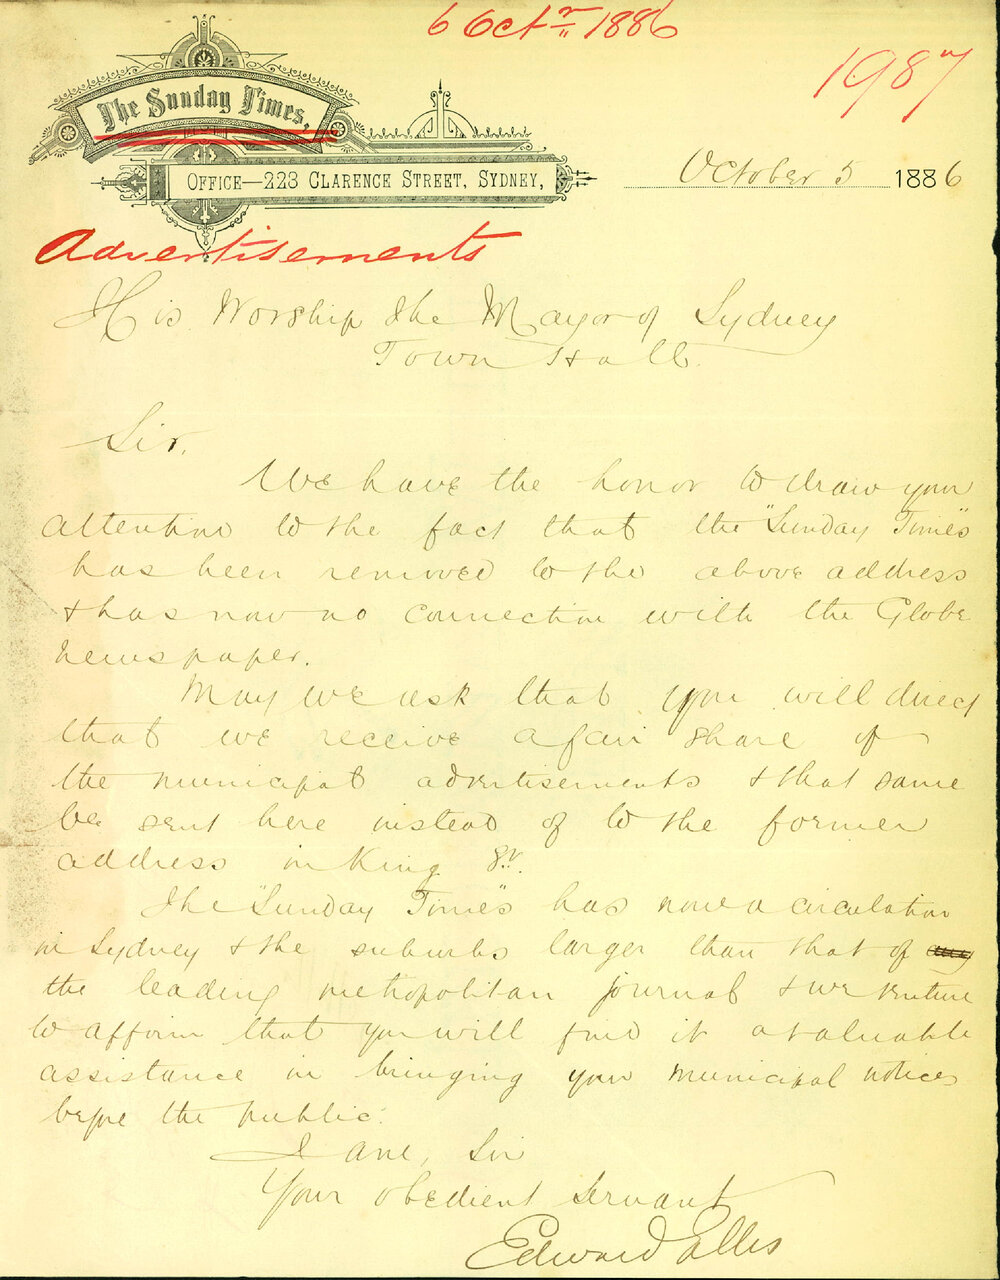 6 Octr 1886
1987
The Sunday Times,
OFFICE—223 CLARENCE STREET, SYDNEY,
October 5 1886
Advertisements
His Worship the Mayor of Sydney
Town Hall
Sir,
We have the honor to draw your
attention to the fact that the "Sunday Times"
has been removed to the above address
& has now no connection with the Globe
newspaper.
May we ask that you will direct
that we receive a fair share of
the municipal advertisements & that same
be sent here instead of to the former
address in King St.
The "Sunday Times" has now a circulation
in Sydney & the suburbs larger than that of any
the leading metropolitan journal & we venture
to affirm that you will find it a valuable
assistance in bringing your municipal notices
before the public.
I am, Sir
Your obedient servant
Edward Ellis